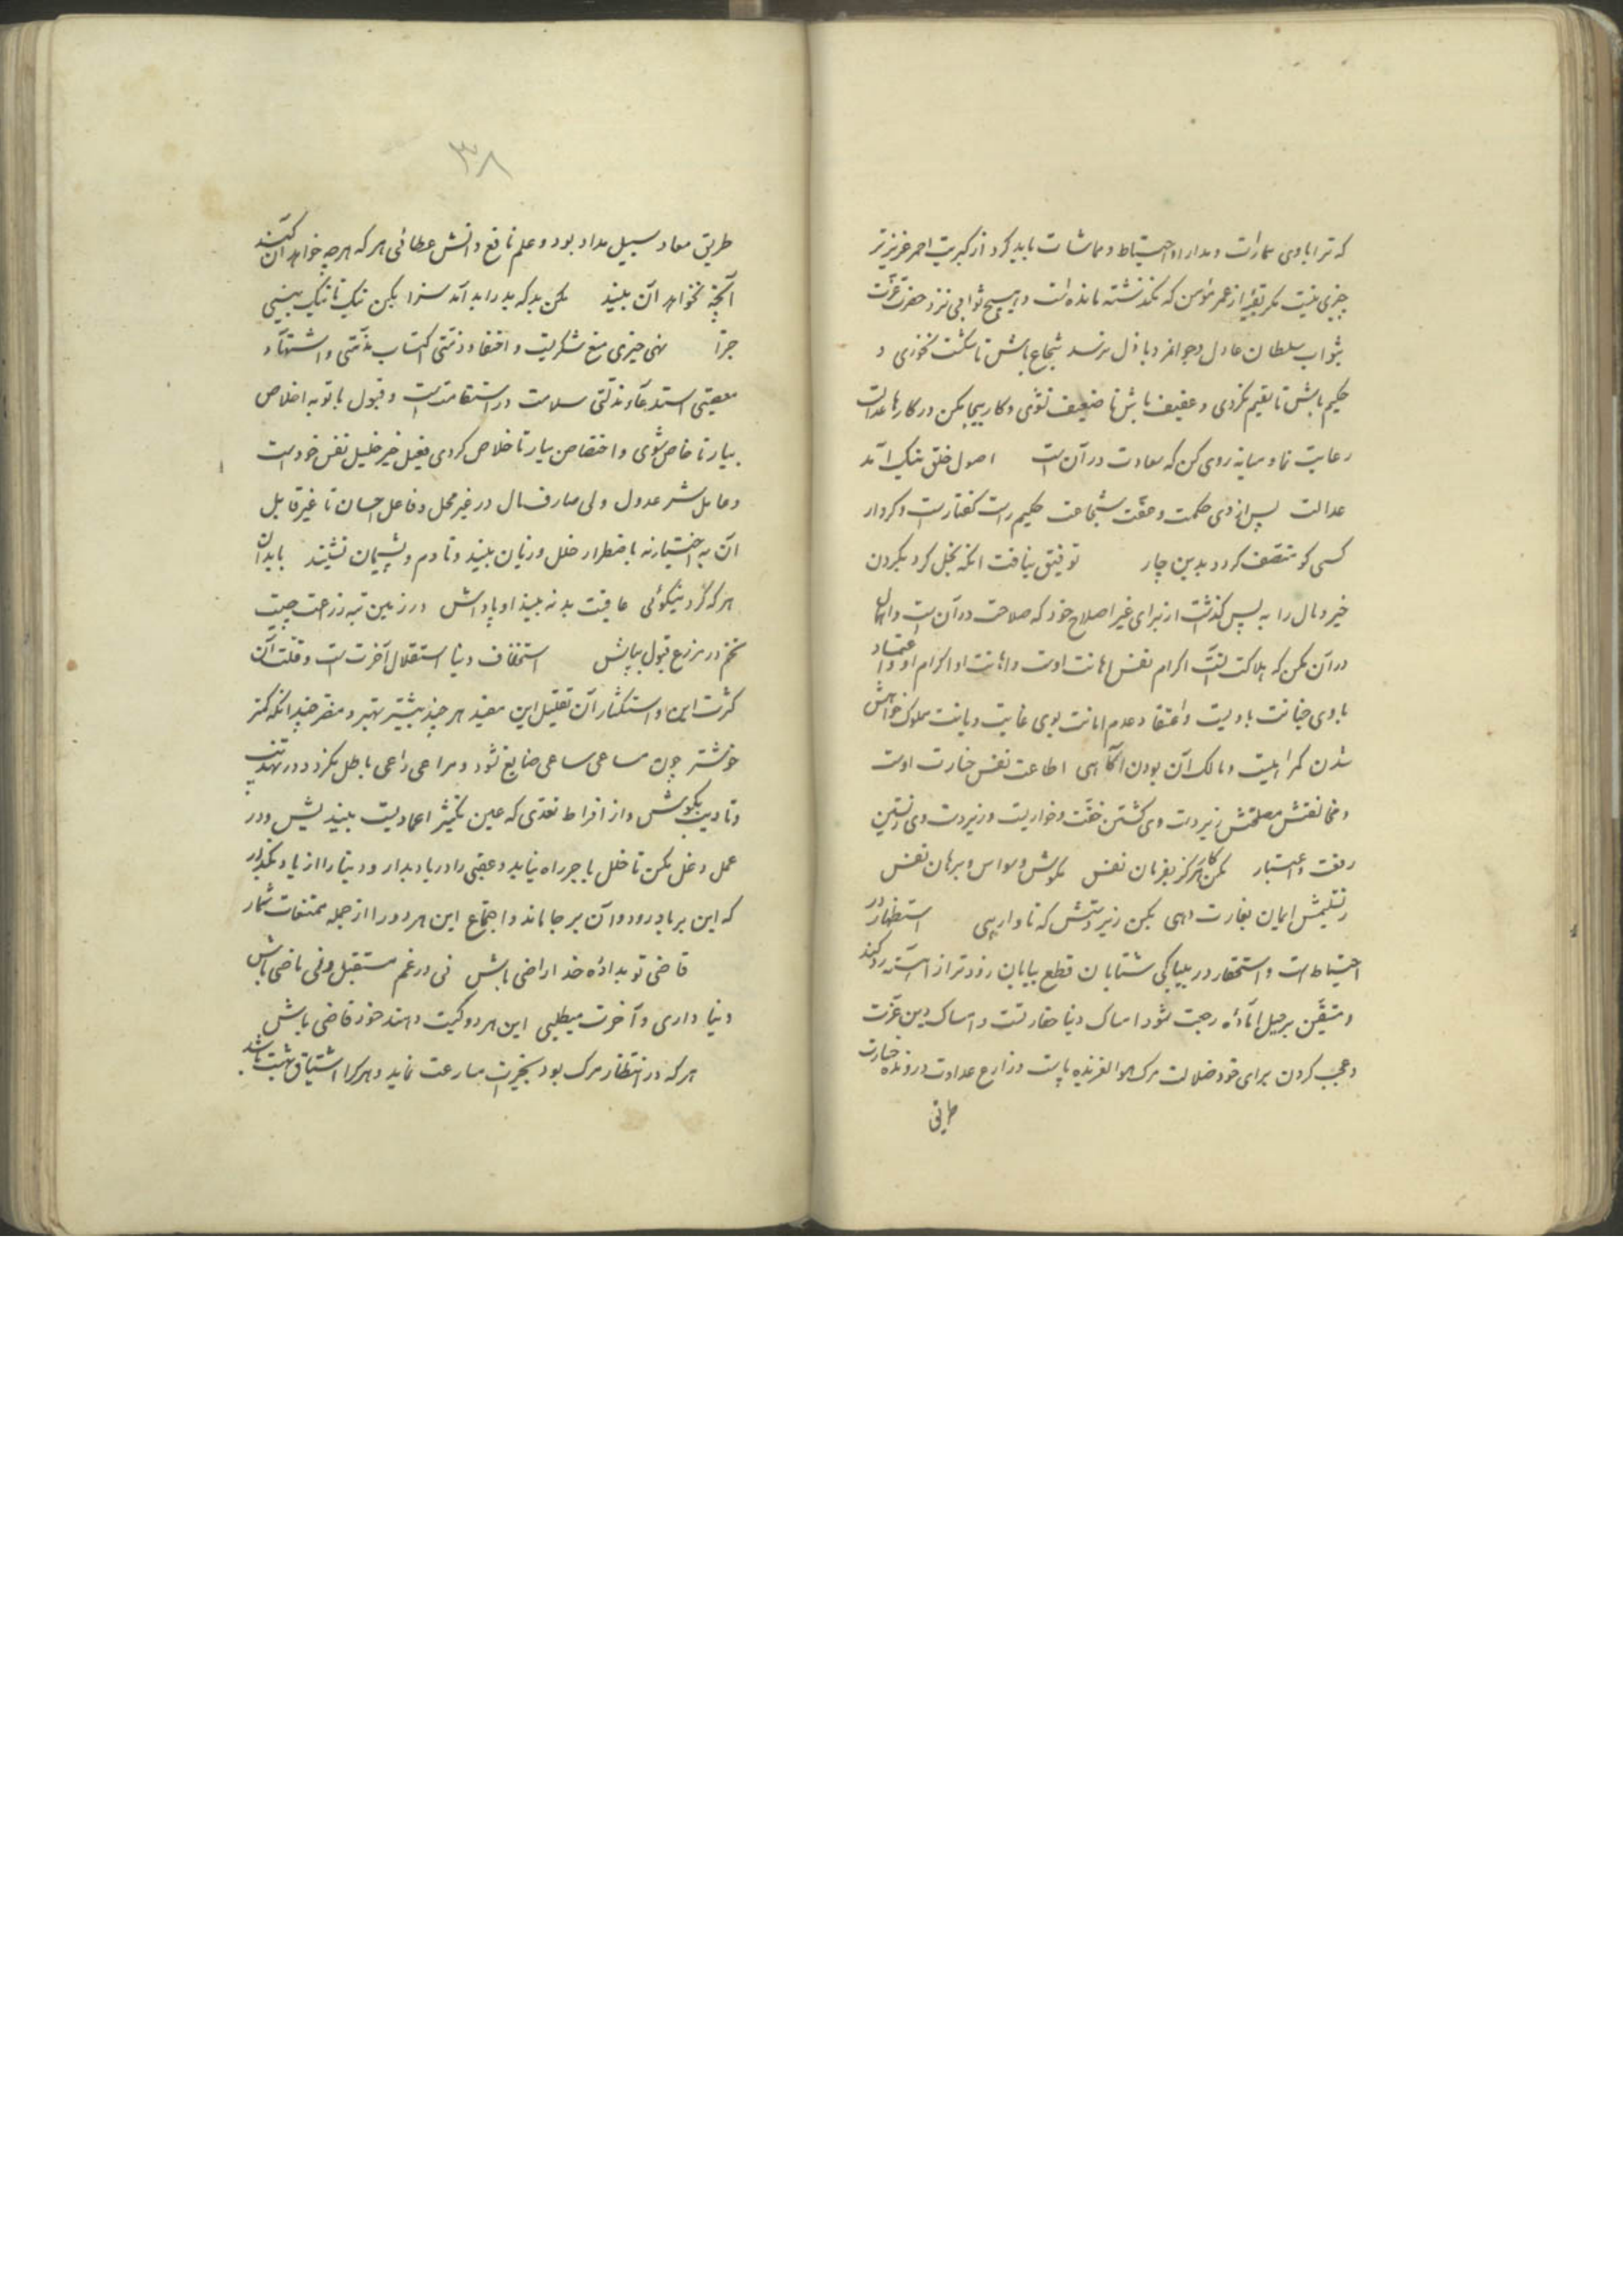 که ترا با وی مدارات و مدارا و احتیاط و مماشات باید کرد از کبریت احمر عزیزتر
چیزی نیست مگر بقیه از عمر مؤمن که نگذشته مانده است و هیچ ثوابی نزد حضرت عزت
بثواب سلطان عادل و جوانمرد باذل نرسد شجاع باش تا شکست نخوری و
حکیم باش تا سقیم نگردی و عفیف باش تا ضعیف نشوی و کار بیجا مکن در کارها عدالت
رعایت نما و میانه روی کن که سعادت در آن است اصول خلق نیک آمد
عدالت پس از وی حکمت و عفت شجاعت حکیم راست گفتارست و کردار
کسی کو متصف گردد بدین چار توفیق نیافت آنکه بخل کرد بکردن
خیر و مال را به پس گذاشت از برای غیر اصلاح خود که صلاحت در آن است و اهمال
در آن مکن که هلاکت تست اکرام نفس اهانت اوست و اهانت او اکرام او و اعتماد
با وی خیانت با ویست و اعتقاد عدم امانت بوی غایت دیانت مملوک خواهش
شدن گمراهیست و مالک آن بودن آگاهی اطاعت نفس خسارت اوست
و مخالفتش مصلحتش زیردست وی گشتن خفت و خواریست و زبردست وی زیستن
رفعت و اعتبار مکن کار هرگز بفرمان نفس مکوش و وسواس و برهان نفس
ز تسلیمش ایمان بغارت دهی مکن زیردستش که تا وارهی استظهار در
احتیاط است و استحقار در بیباکی شتابان قطع بیابان زودتر از آهسته رو کند
و متیقن برحیل آماده رحیت شود امساک دنیا حقارتست و امساک دین عزت
و عجب کردن برای خود ضلالت مرگ هوا لغزنده پاست و زارع عداوت درونده خسارت
طریق
۳۸
طریق معاد سبیل سداد بود و علم نافع و دانش عطائی هر که هر چه خواهد آن کند
آنچه نخواهد آن بیند مکن بد که بد را بد آمد سزا بکن نیک تا نیک بینی
جزا نهی خیری منع شکریست و اختفا و زنتی اکتساب مذمتی و اشتهار
معصیتی استدعاء مذلتی سلامت در استقامت است و قبول با توبه اخلاص
بیار تا خاص شوی و اختصاص بیار تا خلاص گردی فعل خیر خلیل نفس خودست
و عامل شر عدول ولی صارف مال در غیر محل و فاعل احسان تا غیر قابل
آن به اختیار نه باضطرار خلل و زیان بیند و نادم و پشیمان نشیند با بدان
هر که کرد نیکوئی عاقبت بد نه بیند او پاداش در زمین تبه زرعت چیست
تخم در مزرع قبول بپاش استخفاف دنیا استقلال آخرت است و قلت آن
کثرت این و استکثار آن تقلیل این مفید هر چند بیشتر بهتر و مضر چندانکه کمتر
خوشتر چون مساعی ساعی ضایع نشود و مراعی راعی باطل نگردد در تهذیب
و تادیب بکوش و از افراط تعدی که عین تکثیر اعمادیست بیندیش و در
عمل دغل مکن تا خلل باجر راه نیابد و عقبی را در یاد بدار و دنیا را از یاد بگذار
که این بر باد رود و آن بر جا ماند و اجتماع این هر دو را از جمله ممتنعات شمار
قاضی تو بدادهٔ خدا راضی باش نی در غم مستقبل و نی ماضی باش
دنیا داری و آخرت میطلبی این هر دو کیت دهند خود قاضی باش
هر که در انتظار مرگ بود بخیرات مسارعت نماید و هر کرا اشتیاق بهشت باشد